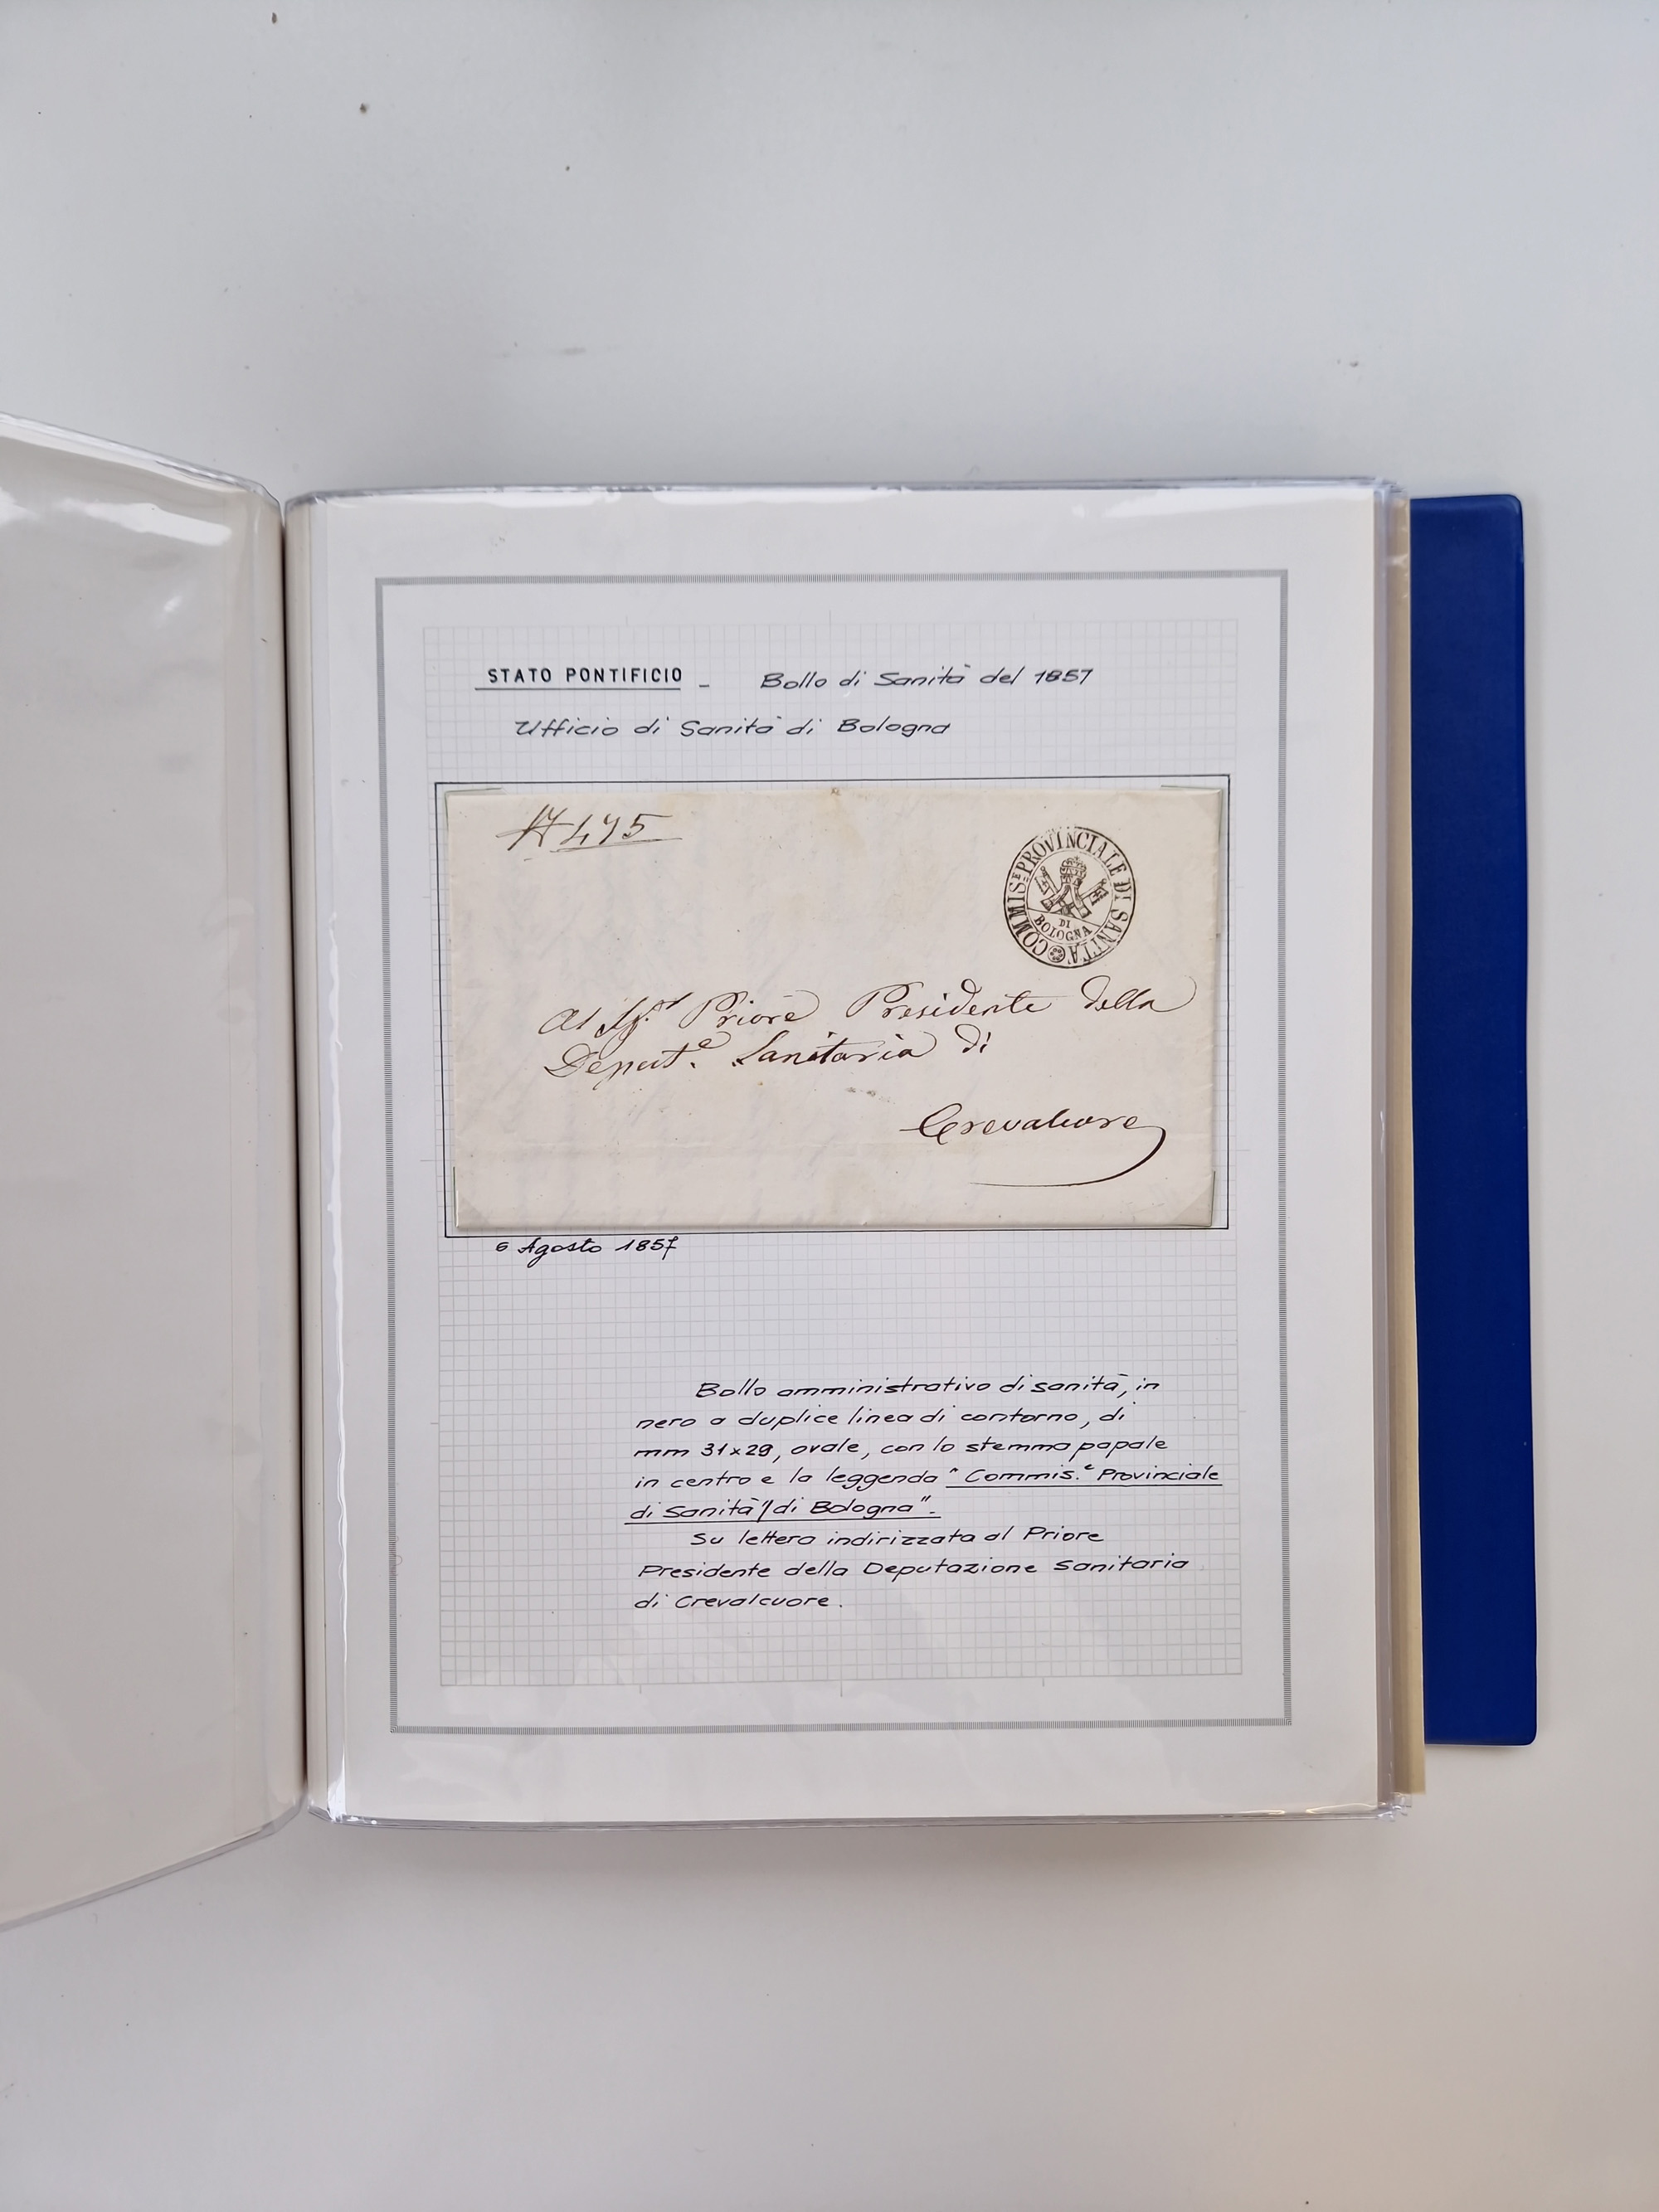 STATO PONTIFICIO - Bollo di Sanità del 1857
Ufficio di Sanità di Bologna
495
COMMIS.E PROVINCIALE DI SANITÀ
DI
BOLOGNA
Al Sig.r Priore Presidente della
Deput.e Sanitaria di
Crevalcore
6 Agosto 1857
Bollo amministrativo di sanità, in
nero a duplice linea di contorno, di
mm 31x29, ovale, con lo stemma papale
in centro e la leggenda "Commis.e Provinciale
di Sanità"/di Bologna".
Su lettera indirizzata al Priore
Presidente della Deputazione Sanitaria
di Crevalcuore.